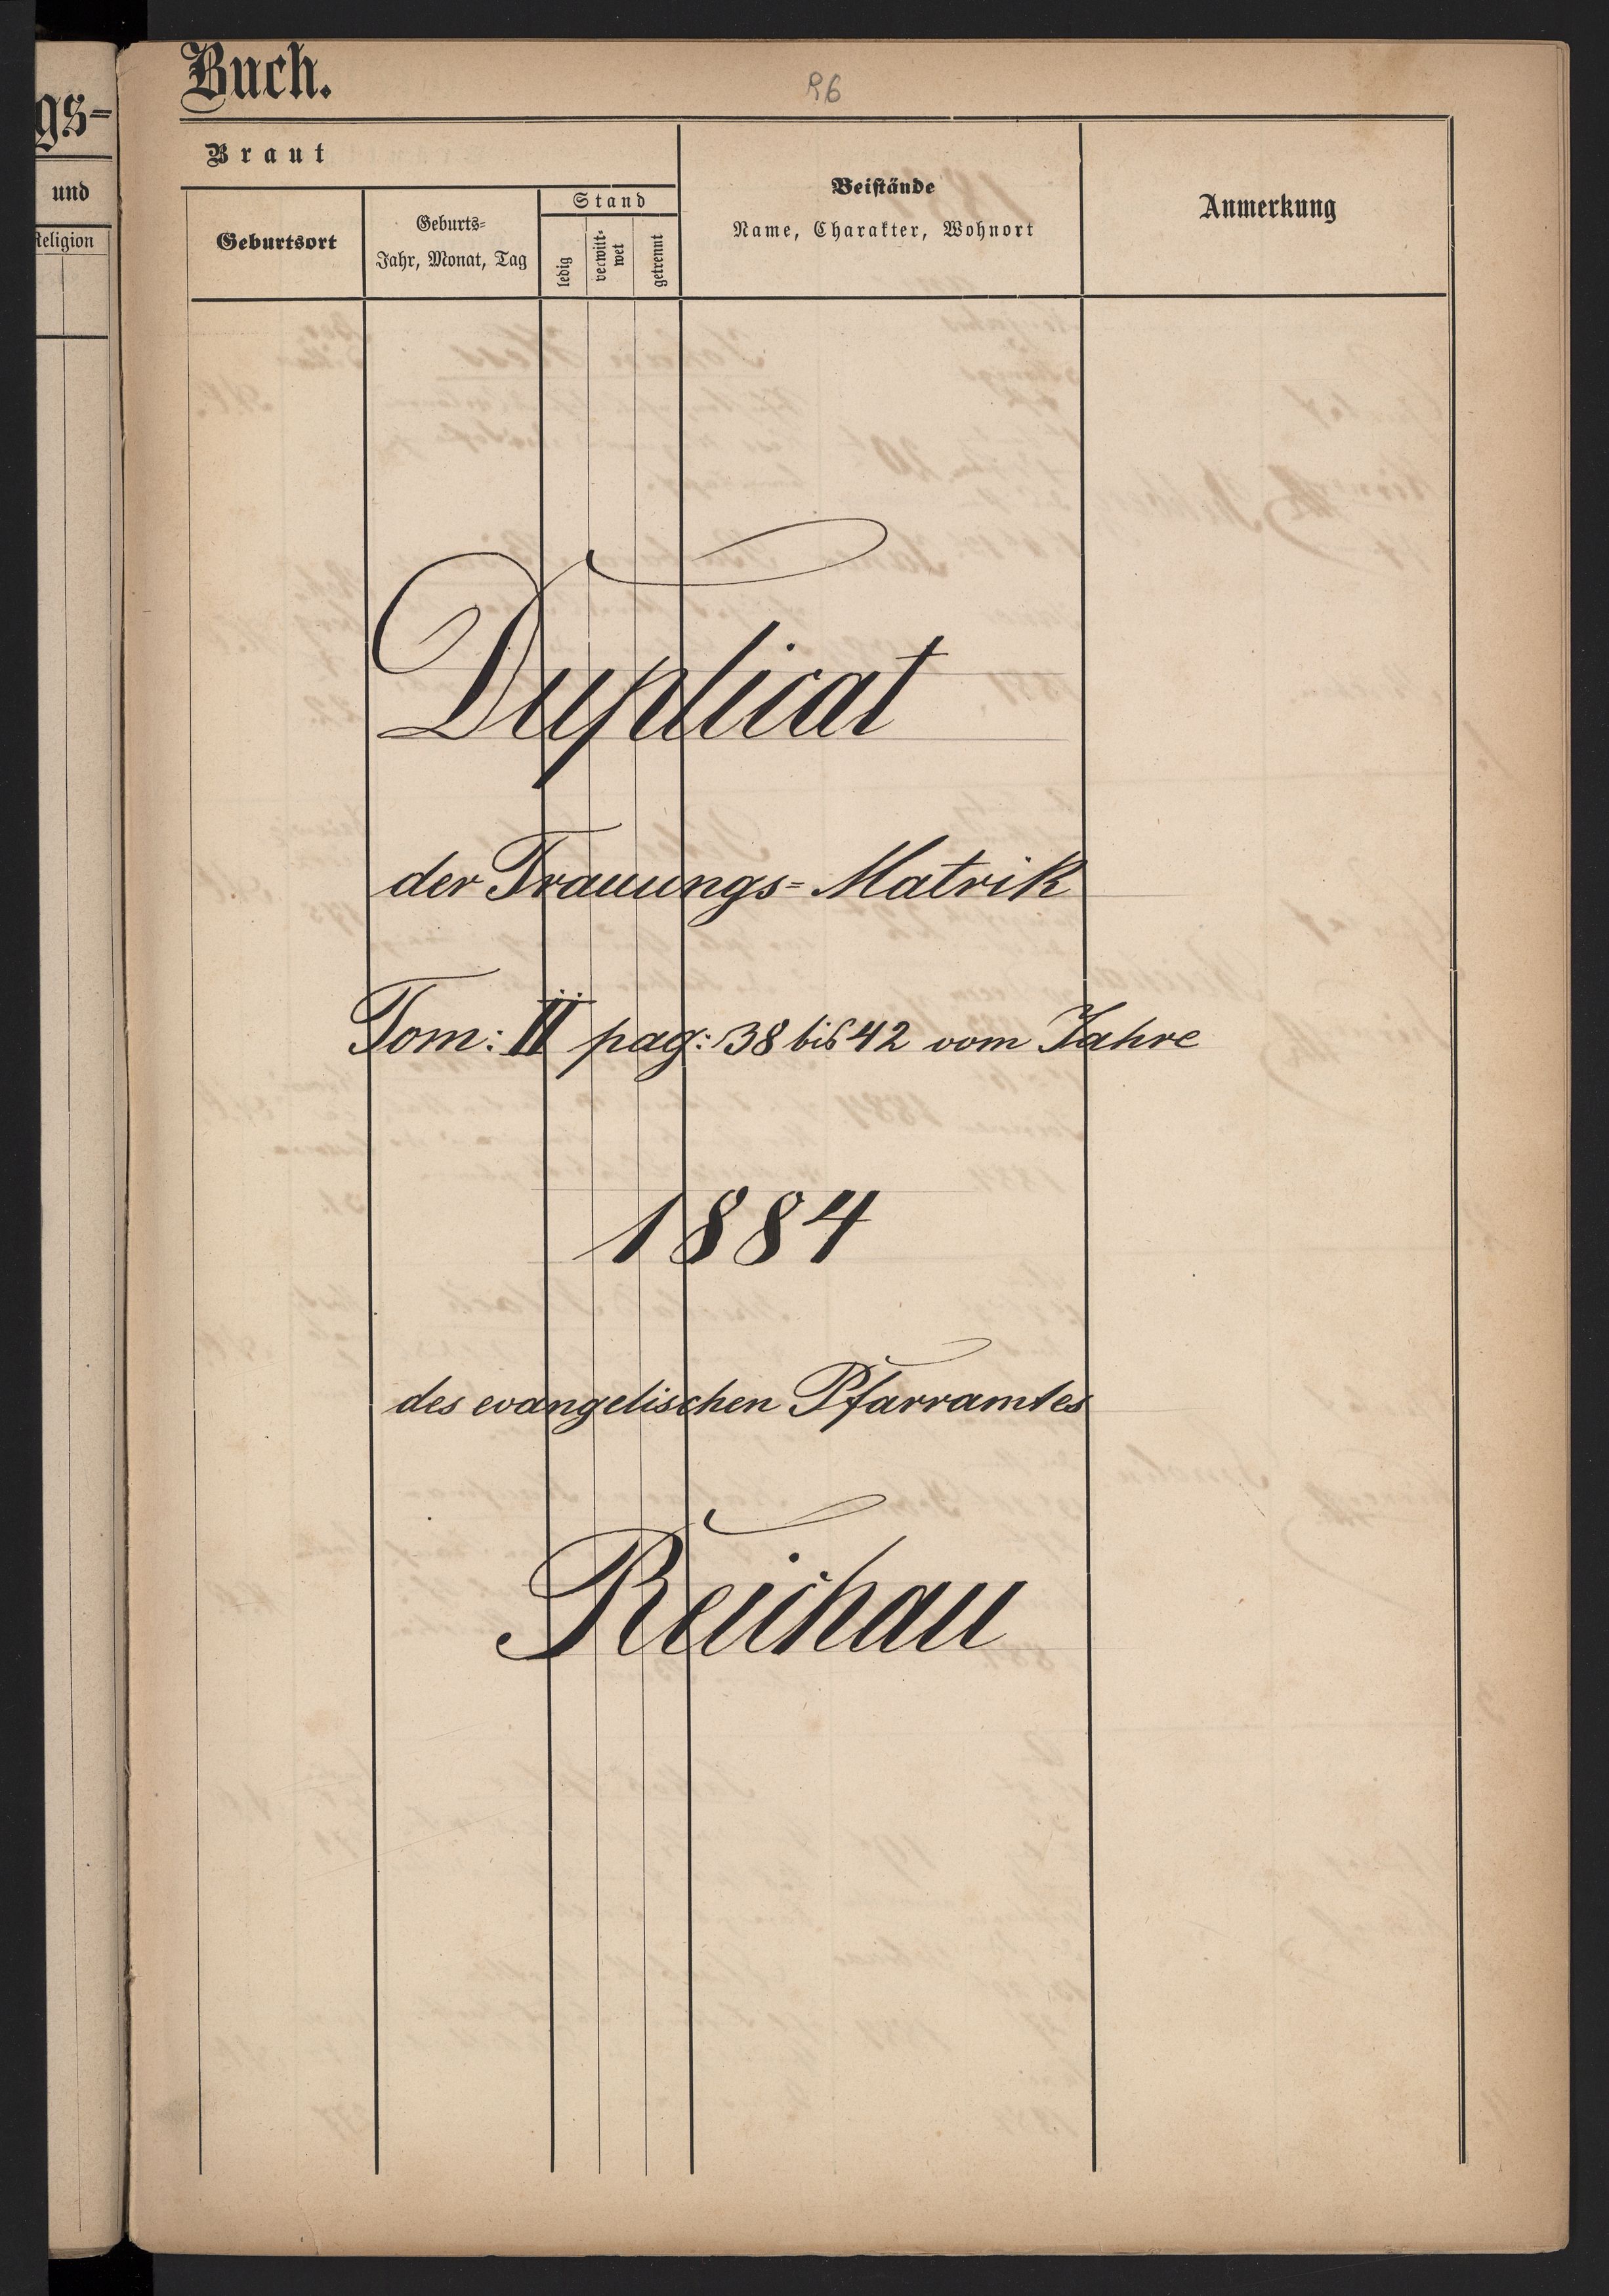 Buch.
R6
gs-
und
Religion
Braut
Geburtsort
Geburts-
Jahr, Monat, Tag
Stand
ledig
verwitt-
wet
getrennt
Beistände
Name, Charakter, Wohnort
Anmerkung
Duplicat
der Trauungs-Matrik
Tom: II pag: 38 bis 42 vom Jahre
1884
des evangelischen Pfarramtes
Reichau